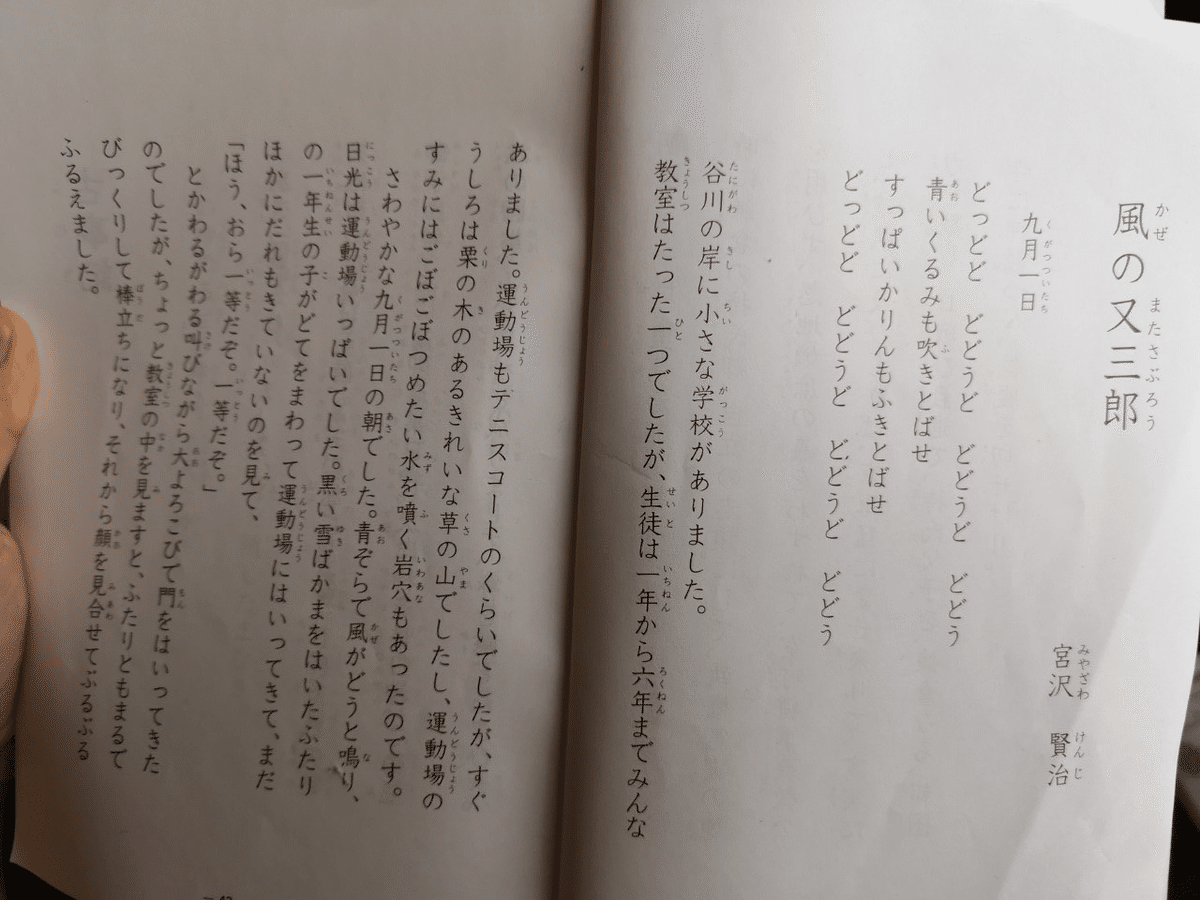 風の又三郎
宮沢 賢治
九月一日
どっどど どどうど どどうど どどう
青いくるみも吹きとばせ
すっぱいかりんもふきとばせ
どっどど どどうど どどうど どどう
谷川の岸に小さな学校がありました。
教室はたった一つでしたが、生徒は一年から六年までみんな
ありました。運動場もテニスコートのくらいでしたが、すぐ
うしろは栗の木のあるきれいな草の山でしたし、運動場の
すみにはごぼごぼつめたい水を噴く岩穴もあったのです。
さわやかな九月一日の朝でした。青ぞらで風がどうと鳴り、
日光は運動場いっぱいでした。黒い雪ばかまをはいたふたり
の一年生の子がどてをまわって運動場にはいってきて、まだ
ほかにだれもきていないのを見て、
「ほう、おら一等だぞ。一等だぞ。」
とかわるがわる叫びながら大よろこびで門をはいってきた
のでしたが、ちょっと教室の中を見ますと、ふたりともまるで
びっくりして棒立ちになり、それから顔を見合せてぶるぶる
ふるえました。